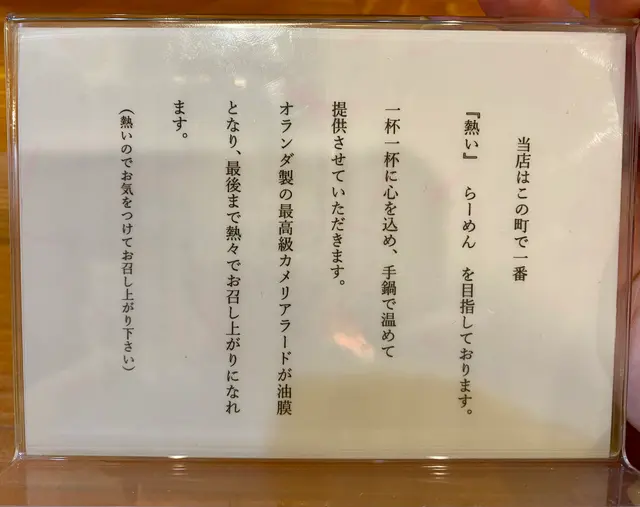 当店はこの町で一番
『熱い』 らーめん を目指しております。
一杯一杯に心を込め、手鍋で温めて
提供させていただきます。
オランダ製の最高級カメリアラードが油膜
となり、最後まで熱々でお召し上がりになれ
ます。
(熱いのでお気をつけてお召し上がり下さい)